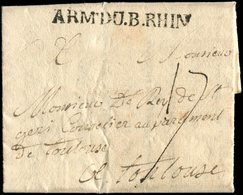 ARM.DU.B.RHIN
A Monsieur
17
Monsieur De Rey de St
gery Conseiller au parlement
de Toulouse
A Toulouse